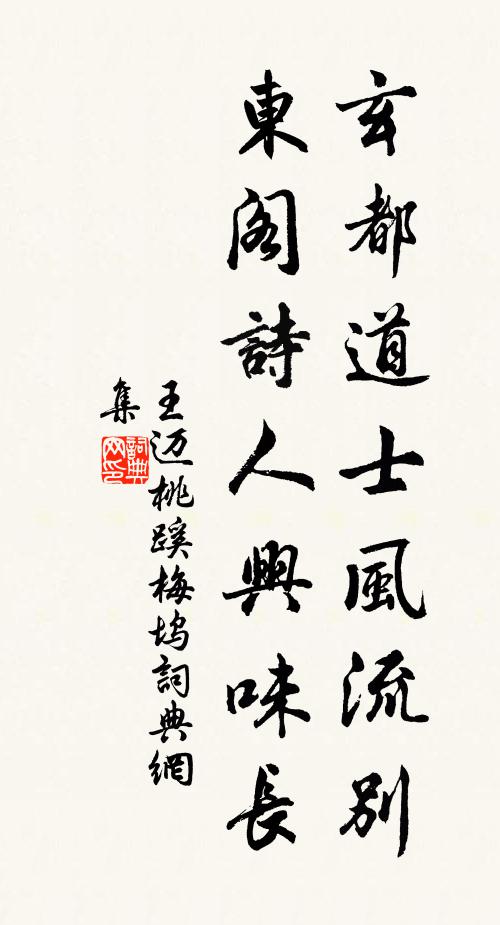 玄都道士風流别
東阁詩人興味長
王迈桃蹊梅坞詞典網
集
詞典網印